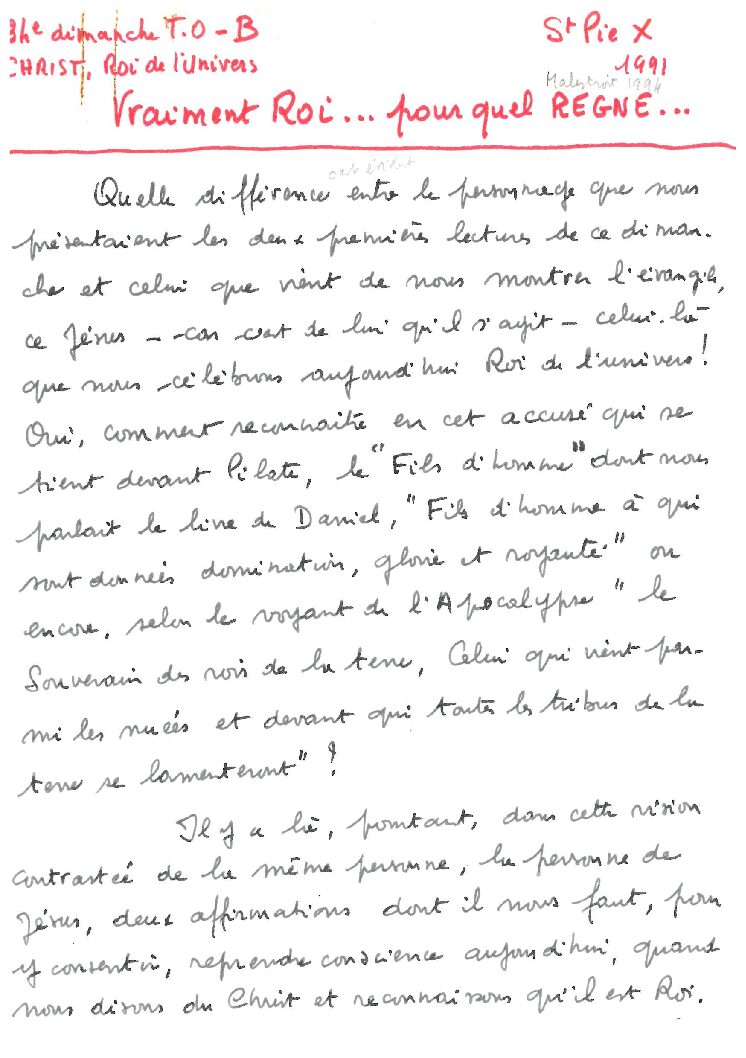 34e dimanche T.O - B
St Pie X
CHRIST, Roi de l'Univers
1991
Malestroit 1994
Vraiment ROI... pour quel REGNE...
Quelle différence entre le personnage que nous
présentaient les deux premières lectures de ce diman-
che et celui que vient de nous montrer l'évangile,
ce Jésus - car c'est de lui qu'il s'agit - celui-là
que nous célébrons aujourd'hui Roi de l'univers!
Oui, comment reconnaître en cet accusé qui se
tient devant Pilate, le "Fils d'homme" dont nous
parlait le livre de Daniel, "Fils d'homme à qui
sont données domination, gloire et royauté" ou
encore, selon le voyant de l'Apocalypse "le
Souverain des rois de la terre, Celui qui vient par-
mi les nuées et devant qui toutes les tribus de la
terre se lamenteront"?
Il y a là, pourtant, dans cette vision
contrastée de la même personne, la personne de
Jésus, deux affirmations dont il nous faut, pour
y consentir, reprendre conscience aujourd'hui, quand
nous disons du Christ et reconnaissons qu'il est Roi.